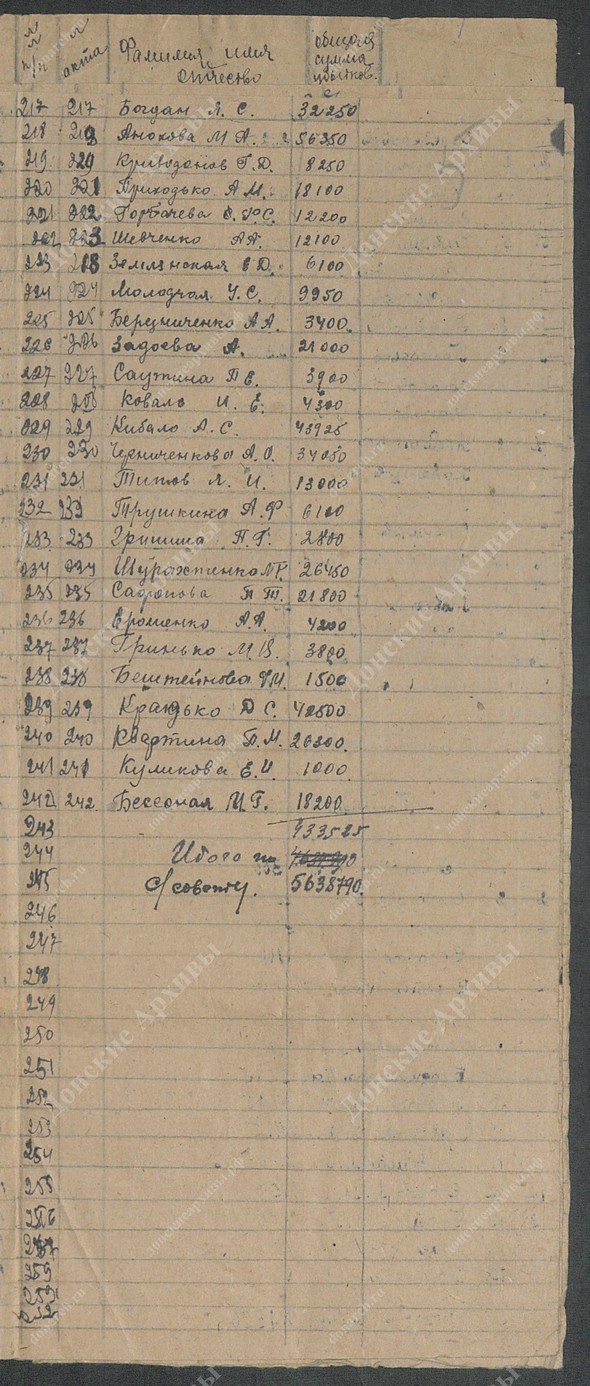 № п/п № акта Фамилия имя отчество общая сумма убытков
217 217 Богдан Я. С. 32250
218 218 Анохова М А. 56350
219 229 Криводонов Г. Д. 8250
220 221 Приходько А М. 18100
221 222 Горбачева 12200
222 223 Шевченко А А. 12100
223 218 Землянская Е Д. 6100
224 224 Молодчая У. С. 9950
225 225 Бережниченко А А. 3400
226 226 Задоева А. 21000
227 227 Саутина П Е. 3900
228 Коваль И. Е. 4300
229 229 Кибало А. С. 43925
230 230 Черниченкова А. И. 34050
231 231 Титов Я. И. 13000
232 232 Трушкина А. Ф 6100
233 233 Гришина П. Г. 2800
234 234 26450
235 235 Сафронова П Т. 21800
236 236 Ерошенко А. А. 4200
237 237 Гринько М. В. 3800
238 238 Бештейнова 1500
239 239 Крандько Д С. 42500
240 240 Квартина П. М. 26200
241 241 Куликова Е. И. 1000
242 242 Бессоная М. Г. 18200
243 433525
244 Итого по
245 с/совету. 5638790.
246
247
248
249
250
251
252
253
254
255
256
257
259
259
донскиеархивы.рф
Донские Архивы